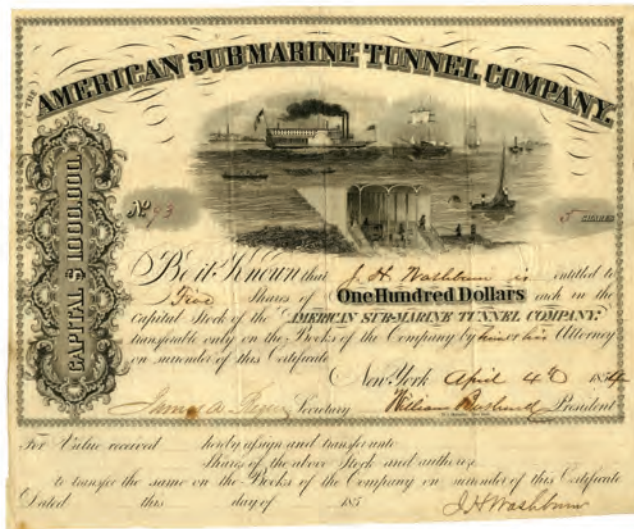 THE AMERICAN SUBMARINE TUNNEL COMPANY.
CAPITAL $1000,000.
No 93
5 SHARES
Be it Known that J. H. Washburn is entitled to
Five Shares of One Hundred Dollars each in the
Capital Stock of the AMERICAN SUB-MARINE TUNNEL COMPANY.
transferable only on the Books of the Company by him or his Attorney
on surrender of this Certificate
New York April 4th 1854
James A. Secretary William President
For Value received hereby assign and transfer unto
Shares of the above Stock and authorize
to transfer the same on the Books of the Company on surrender of this Certificate
Dated this day of 185
J H Washburn